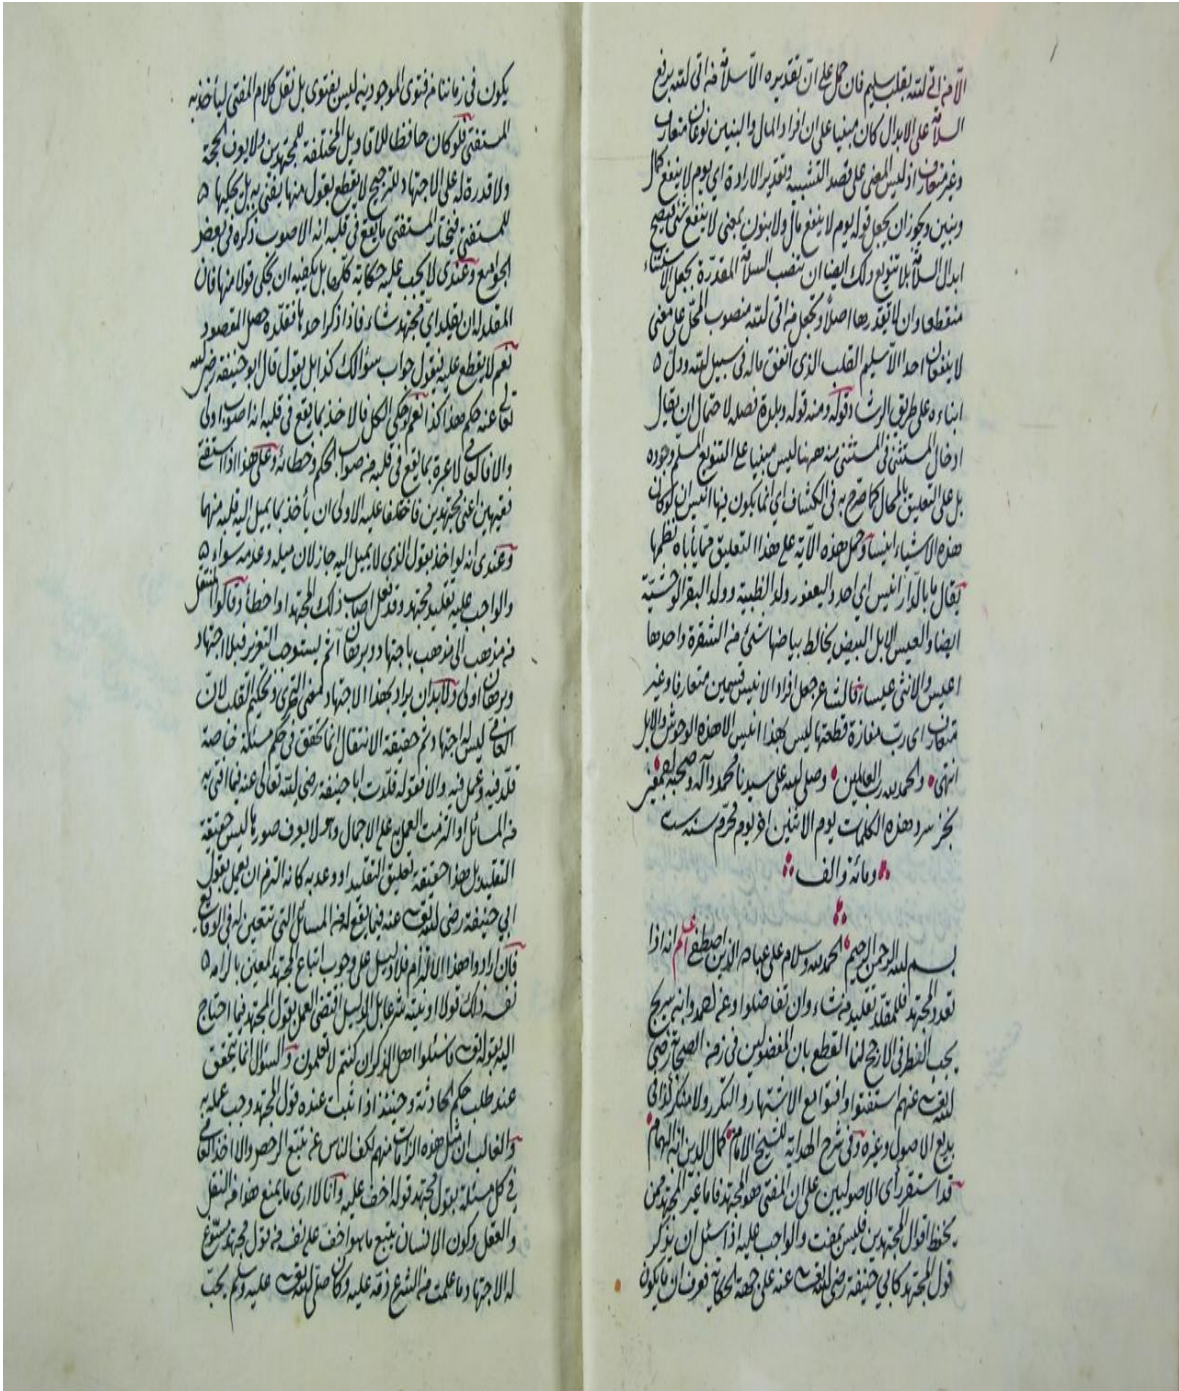 الا من اتى الله بقلب سليم فان حمل على ان تقديره الا سلامة من اتى الله برفع
السلامة على الابدال كان مبنيا على ان افراد المال والبنين نوعان متعارف
وغير متعارف اذ ليس المعنى على قصد التشبيه وتقدير الارادة اي يوم لا ينفع كمال
وبنين ويجوز ان يجعل قوله يوم لا ينفع مال ولا بنون بمعنى لا ينفع شئ فيصح
ابدال السلامة بلا تنويع ولك ايضا ان تنصب السلامة المقدرة بجعل الاستثناء
منقطعا وان لا تقدرها اصلا وتجعل من اتى الله منصوب المحل على معنى
لا ينفعان احدا الا سليم القلب الذي انفق ماله في سبيل الله ودل
ابناءه على طريق الرشاد قوله ومنه قوله وبلدة فصله لاحتمال ان يقال
ادخال المستثنى في المستثنى منه ههنا ليس مبنيا على التنويع المسلم وجوده
بل على التعليق بالمحال كما صرح به في الكشاف اي انما يكون فيها انيس ان لو كان
هذه الاشياء انيسا وحمل هذه الآية على هذا التعليق مما يأباه نظمها
يقال ما بالدار انيس اي احد واليعفور ولد الظبية وولد البقر الوحشية
ايضا والعيس الابل البيض يخالط بياضها شئ من الشقرة واحدها
اعيس والانثى عيساء فالشاعر جعل افراد الانيس قسمين متعارفا وغير
متعارف اي رب مفازة قطعتها ليس بهذا انيس الا هذه الوحوش والابل
انتهى والحمد لله رب العالمين وصلى الله على سيدنا محمد وآله وصحبه
نجز سرد هذه الكلمات يوم الاثنين آخر يوم محرم سنة ست
ومائة والف
بسم الله الرحمن الرحيم الحمد لله وسلام على عباده الذين اصطفى اعلم انه اذا
تعدد المجتهد فللمقلد تقليد من شاء وان تفاضلوا وعن احمد وابن سريج
يجب النظر في الارجح لنا القطع بان المفضولين في زمن الصحابة رضي
الله تعالى عنهم استفتوا وافتوا مع الاشتهار والتكرر ولا منكر كذا في
بديع الاصول وغيره وفي شرح الهداية للشيخ الامام كمال الدين ابن الهمام
قد استقر رأى الاصوليين على ان المفتي هو المجتهد فاما غير المجتهد ممن
يحفظ اقوال المجتهدين فليس بمفت والواجب عليه اذا سئل ان يذكر
قول المجتهد كابي حنيفة رضي الله تعالى عنه على جهة الحكاية فعرف ان ما يكون
يكون في زماننا من فتوى الموجودين ليس بفتوى بل نقل كلام المفتي ليأخذ به
المستفتي فلو كان حافظا للاقاويل المختلفة للمجتهدين ولا يعرف الحجة
ولا قدرة له على الاجتهاد للترجيح لا يقطع بقول منها يفتي به بل يحكيها
للمستفتي فيختار المستفتي ما يقع في قلبه انه الاصوب ذكره في بعض
الجوامع وعندي لا يجب عليه حكاية كلها بل يكفيه ان يحكي قولا منها فان
المقلد له ان يقلد اي مجتهد شاء فاذا ذكر احدها فقلده حصل المقصود
نعم لا يقطع عليه فيقول جواب سؤالك كذا بل يقول قال ابو حنيفة رضي الله
تعالى عنه حكم هذا كذا نعم لو حكى الكل فالاخذ بما يقع في قلبه انه اصوب اولى
والا فالعامي لا عبرة بما يقع في قلبه من صواب الحكم وخطائه وعلى هذا اذا استفتى
فقيهين اعني مجتهدين فاختلفا عليه الاولى ان يأخذ بما يميل اليه قلبه منهما
وعندي انه لو اخذ بقول الذي لا يميل اليه جاز لان ميله وعدمه سواء
والواجب عليه تقليد مجتهد وقد فعل اصاب ذلك المجتهد او اخطأ وقالوا المنتقل
من مذهب الى مذهب باجتهاد وبرهان آثم يستوجب التعزير فبلا اجتهاد
وبرهان اولى ولا بد ان يراد بهذا الاجتهاد معنى التحري وتحكيم القلب لان
العامي ليس له اجتهاد ثم حقيقة الانتقال انما تحقق في حكم مسئلة خاصة
قلد فيه وعمل فيه والا فقوله قلدت ابا حنيفة رضي الله تعالى عنه فيما افتى به
من المسائل او التزمت العمل به على الاجمال وهو لا يعرف صورها ليس حقيقة
التقليد بل هذا حقيقة تعليق التقليد او وعد به كانه التزم ان يعمل بقول
ابي حنيفة رضي الله تعالى عنه فيما يقع له من المسائل التي تتعين له في الوقائع
فان ارادوا هذا الالتزام فلا دليل على وجوب اتباع المجتهد المعين بالزامه
نفسه ذلك قولا او نية شرعا بل الدليل اقتضى العمل بقول المجتهد فيما احتاج
اليه بقوله تعالى فاسئلوا اهل الذكر ان كنتم لا تعلمون والسؤال انما يتحقق
عند طلب حكم الحادثة وحينئذ اذا ثبت عنده قول المجتهد وجب عمله به
والغالب ان مثل هذه الزامات منهم لكف الناس عن تتبع الرخص والا اخذ العامي
في كل مسئلة بقول مجتهد قوله اخف عليه وانا لا ادري ما يمنع هذا من النقل
والعقل وكون الانسان يتبع ما هو اخف على نفسه من قول مجتهد مسوغ
له الاجتهاد ما علمت من الشرع ذمه عليه وكان صلى الله تعالى عليه وسلم يحب